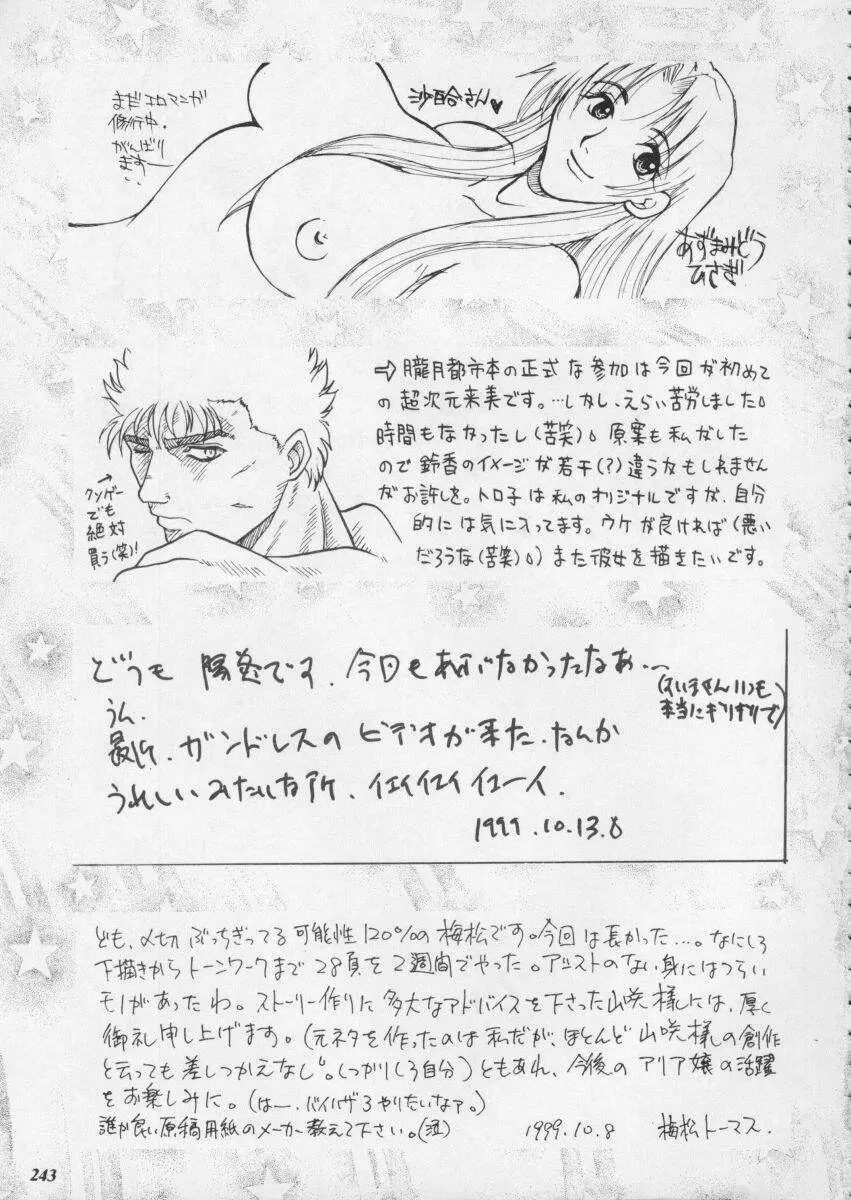 まだエロマンガ
修行中.
がんばり
ますー
沙百合さん♥
あずまみどう
ひさぎ
⇨朧月都市本の正式な参加は今回が初めて
の超次元来美です。…しかし、えらい苦労しました。
時間もなかったし(苦笑)。原案も私がした
ので鈴香のイメージが若干(?)違うかもしれません
がお許しを。トロ子は私のオリジナルですが、自分
的には気に入ってます。ウケが良ければ(悪い
だろうな(苦笑)。)また彼女を描きたいです。
→
クソゲー
でも
絶対
買う(笑)!
どうも 陽炎です. 今回もあぶなかったなあ...
(すいませんいつも
本当にギリギリで)
うん.
最近. ガンドレスのビデオが来た. なんか
うれしいみたいな所. イエイイエイイエーイ.
1999.10.13.
ども、〆切ぶっちぎってる可能性120%の梅松です。今回は長かった…。なにしろ
下描きからトーンワークまで28頁を2週間でやった。アシストのない身にはつらい
モノがあったわ。ストーリー作りに多大なアドバイスを下さった山咲様には、厚く
御礼申し上げます。(元ネタを作ったのは私だが、ほとんど山咲様の創作
と云っても差しつかえなし。しっかりしろ自分)ともあれ、今後のアリア嬢の活躍
をお楽しみに。(はー、バイハザ3やりたいなァ。)
誰か良い原稿用紙のメーカー教えて下さい。(泣) 1999.10.8 梅松トーマス.
243